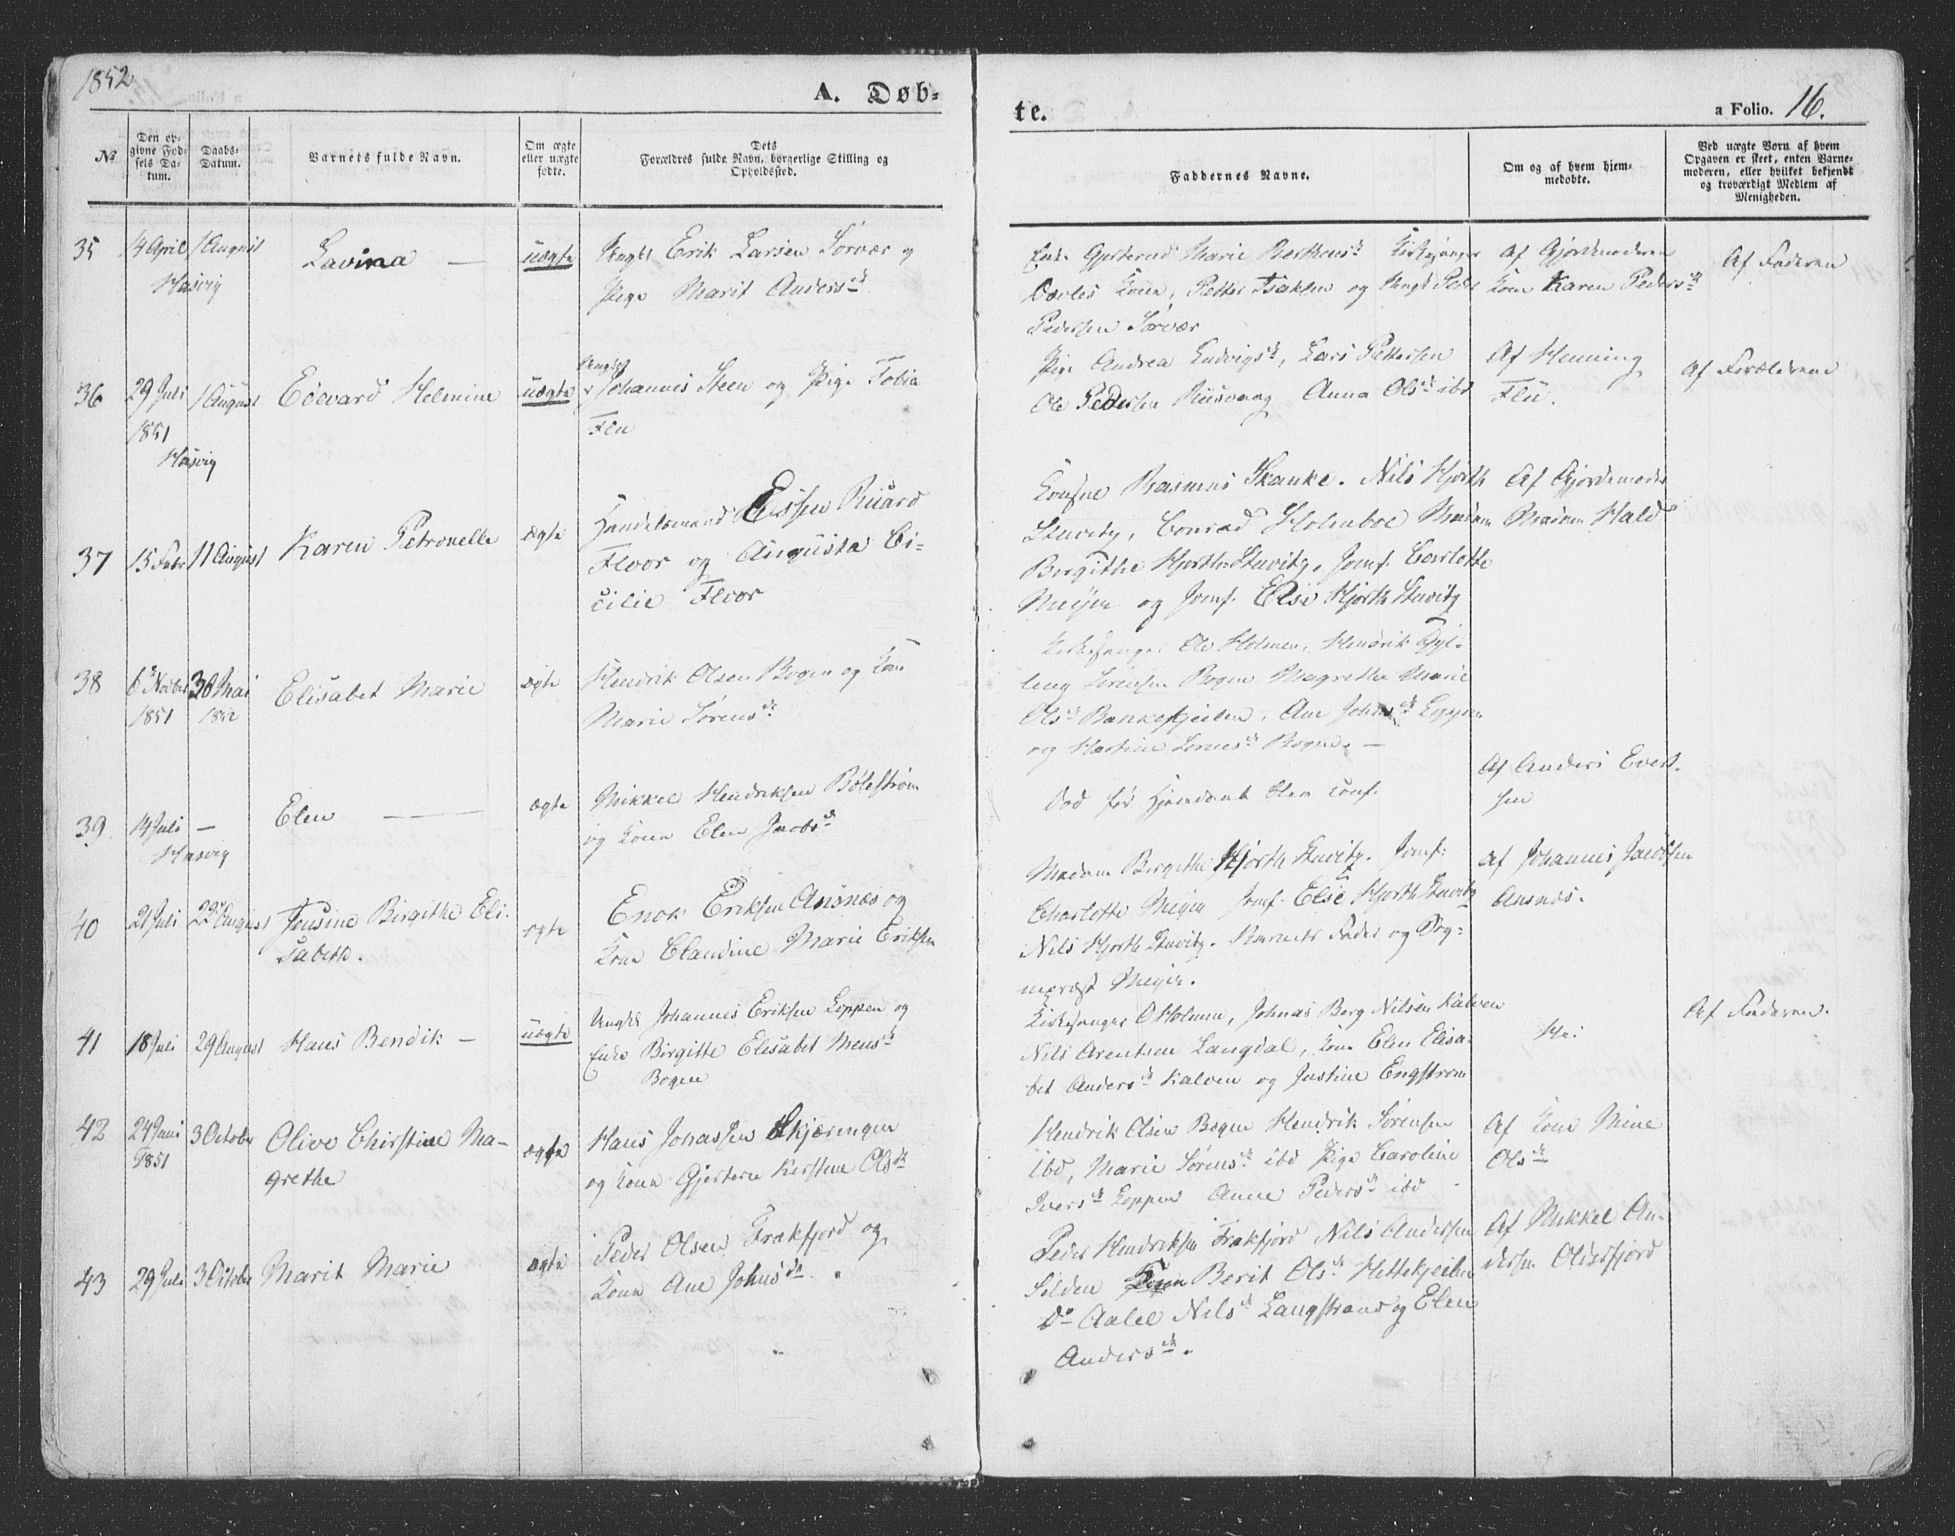 1852
A. Døb-
te.
a Folio. 16.
No
Den op-
givne Fød-
sels Da-
tum.
Daabs-
Datum.
Barnets fulde Navn.
Om ægte
eller uægte
fødte.
Dets
Forældres fulde Navn, borgerlige Stilling og
Opholdssted.
Faddernes Navne.
Om og af hvem hjem-
medøbte.
Ved uægte Børn af hvem
Opgaven er skeet, enten Barne-
moderen, eller hvilket bekjendt
og troværdigt Medlem af
Menigheden.
35
4 April
Hasvig
1 August
Lavina
uægte
Ungk Erik Larsen Sørvær og
Pige Marit Andersdr
Enke Gjertrud Marie Kirkesanger
Kone, Petter Isaksen og Ungk Peder
Pedersen Sørvær
Af Gjordemoderen
Kone Karen Pedersdr
Af Faderen
36
29 Juli
1851
Hasvig
1 August
Edevard Helmine
uægte
Ungk
Johannes Steen og Pige Tobia
Flu
Pige Andrea Ludvigsdr, Lars Pettersen
Ole Pedersen Anna Olsdr ibd
Af Henning
Flu.
Af Forældrene
37
15 Febr
11 August
Karen Petronelle
ægte
Handelsmand Eissen Ruard
Floor og Augusta Ci-
cilie Floor
Rasmus Skanke. Nils Hjorth
Stuvitz, Conrad Holmboe Madam
Birgithe Hjorth Stuvitz, Jomf. Carlotte
Meyer og Jomf. Else Hjorth Stuvitz
Af Gjordemoder
Madam Hald
38
6 Novbr
1851
30 Mai
1852
Elisabet Marie
ægte
Hendrik Olsen Bogen og Kone
Marie Sørensdr
Kirkesanger Ole Holmen, Hendrik Gyl-
leng Sørensen Bogen Magrethe Marie
Olsdr Bankekjeilen, Ane Johnsdr Loppen
og Martine Sørensdr Bogen. —
39
14 Juli
Hasvig
—
Elen
ægte
Mikkel Hendriksen Bølestrøm
og Kone Elen Jacobsdr
Død før Hjemdaab blev conf.
Af Anders Evert-
sen
40
21 Juli
22 August
Jensine Birgithe Eli-
sabeth.
ægte
Enok Eriksen Ansnæs og
Kone Claudine Marie Eriksen
Madam Birgithe Hjorth Stuvitz. Jomf:
Charlotte Meyer Jomf. Else Hjorth Stuvitz
Nils Hjorth Stuvitz. Barnets Fader og Sog-
nepræst Meyer.
Af Johannes Jacobsen
Ansnes.
41
18 Juli
29 August
Hans Bendik —
uægte
Ungk Johannes Eriksen Loppen og
Enke Birgitte Elisabet Mensdr
Bogen
Kirkesanger O Holmen, Johnas Berg Nilsen Kalven
Nils Arentsen Langdal, Kone Elen Elisa-
bet Andersdr Kalven og Justine Engstrøm
Af Faderen.
42
24 Juni
1851
3 October
Olive Chirstine Ma-
grethe
ægte
Hans Johassen Skjæringen
og Kone Gjertine Kirstine Olsdr
Hendrik Olsen Bogen Hendrik Sørensen
ibd, Marie Sørensdr ibd Pige Caroline
Iversdr Loppen Anne Pedersdr ibd
Af Kone Mine
Olsdr
43
29 Juli
3 October
Marit Marie
ægte
Peder Olsen Frakfjord og
Kone Ane Johnsdr.
Peder Hendriksen Frakfjord Nils Andersen
Silden Berit Olsdr Hettekjeilen
Do Aalet Nilsdr Langstrand og Elen
Andersdr.
Af Mikkel An-
dersen Oldersfjord